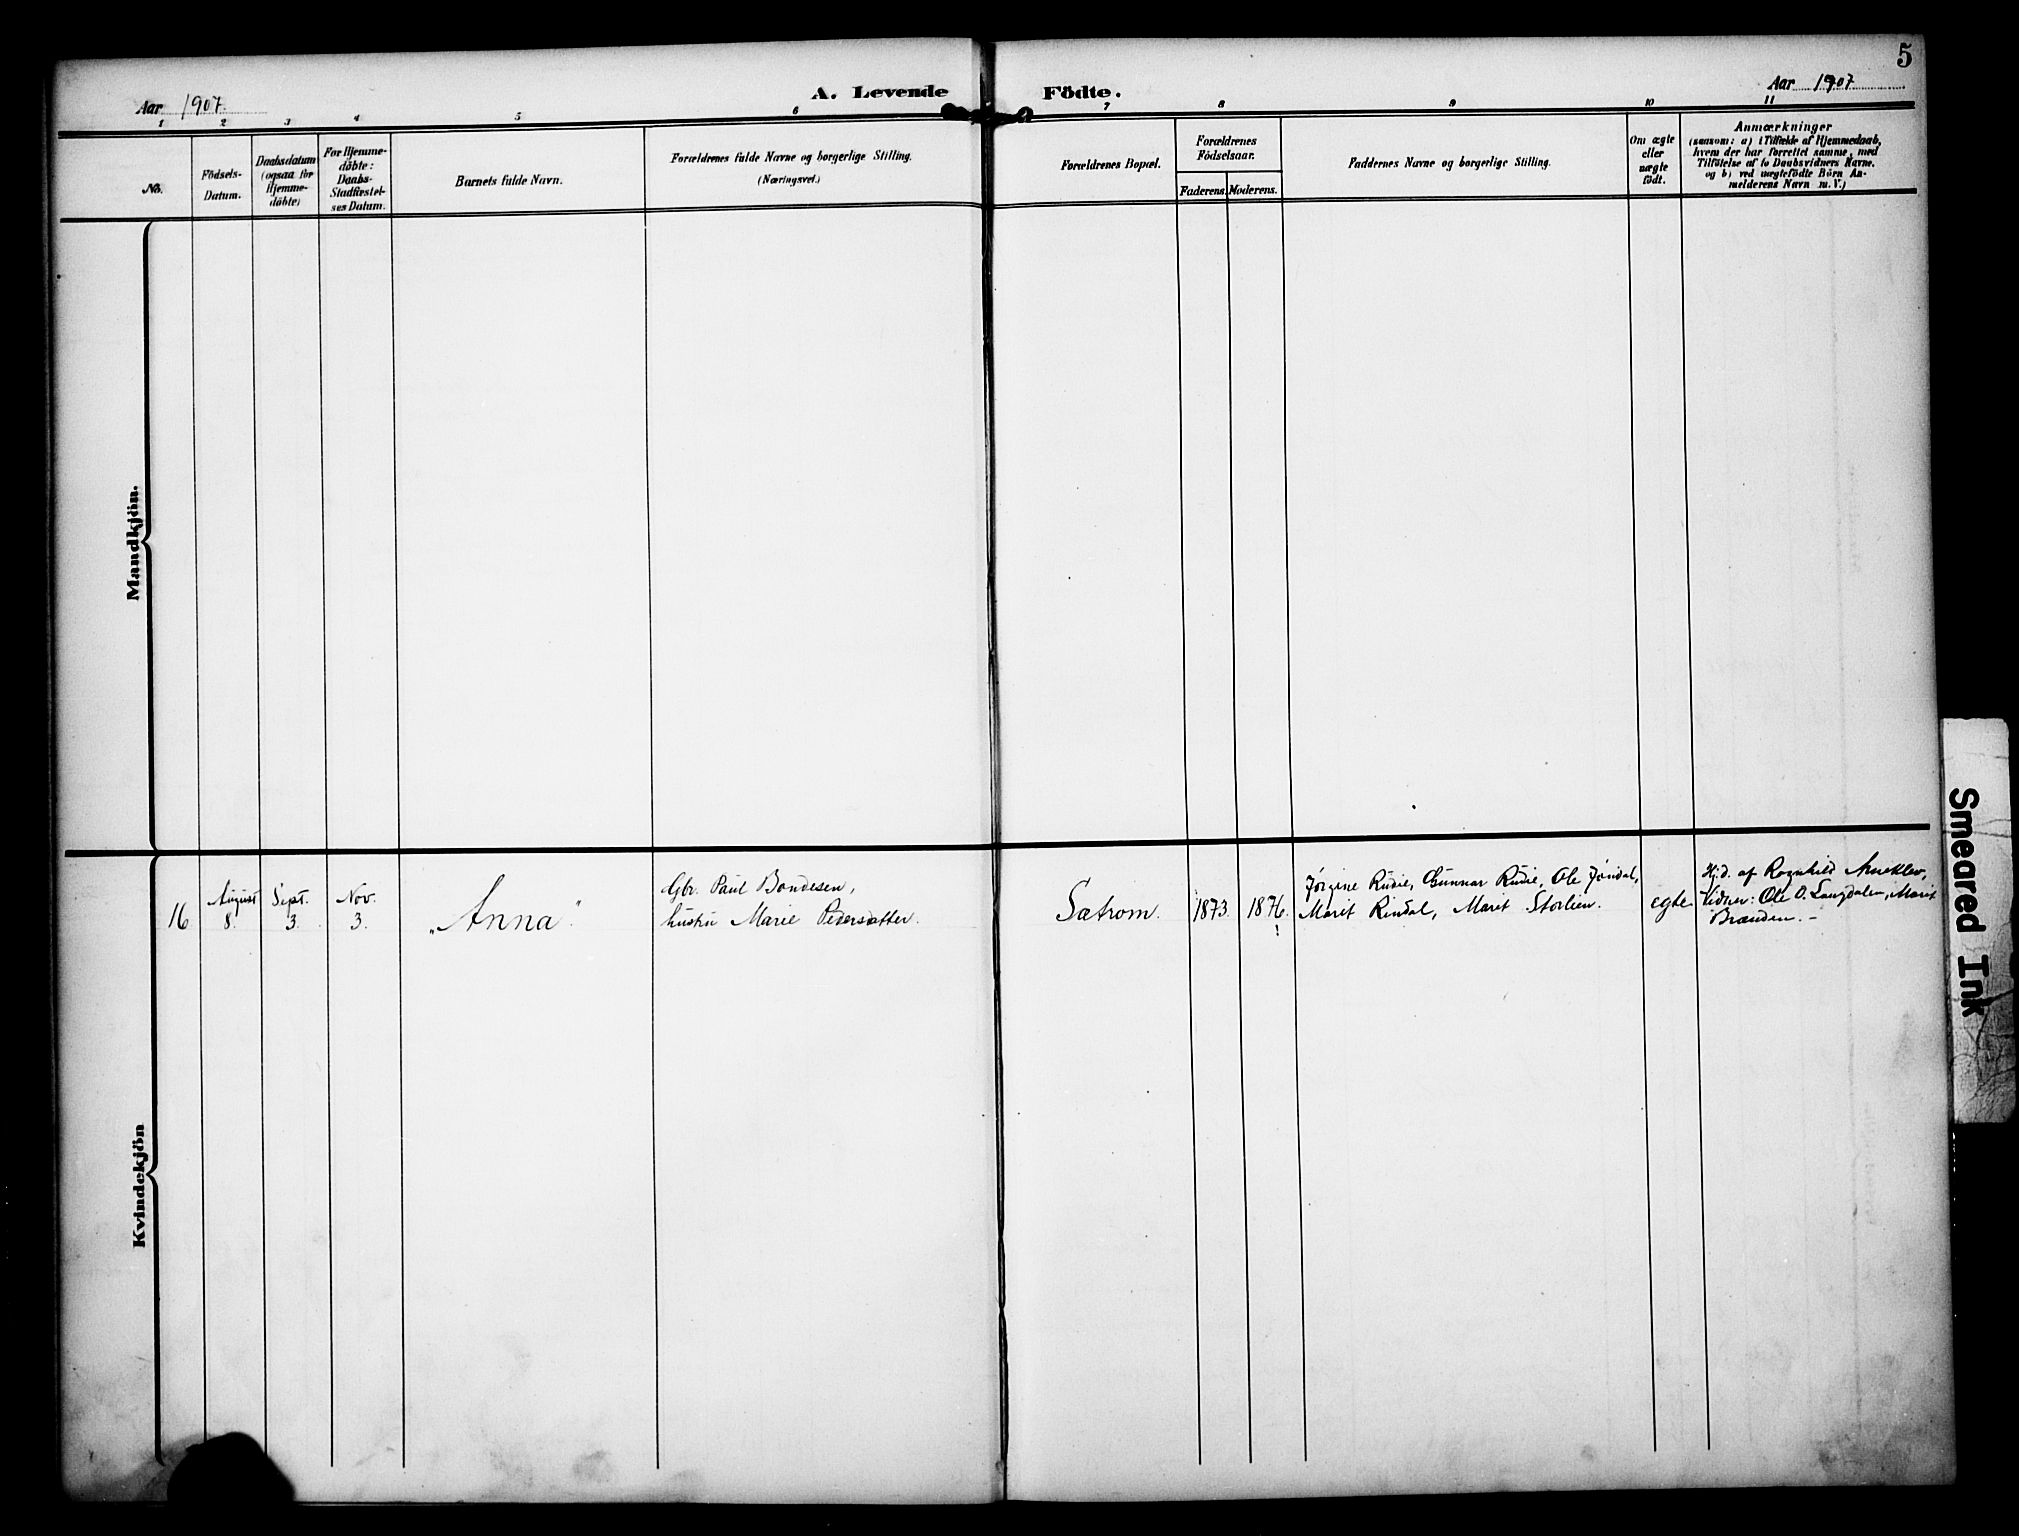 5
Aar 1907.
A. Levende Födte.
Aar 1907
1 2 3 4 5 6 7 8 9 10 11
No.
Födsels-
Datum.
Daabsdatum
(ogsaa for
Hjemme-
döbte)
For Hjemme-
döbte:
Daabs-
Stadfæstel-
ses Datum.
Barnets fulde Navn.
Forældrenes fulde Navne og borgerlige Stilling.
(Næringsvei.)
Forældrenes Bopæl.
Forældrenes
Födselsaar.
Faderens. Moderens.
Faddernes Navne og borgerlige Stilling.
Om ægte
eller
uægte
født.
Anmærkninger
(saasom: a) i Tilfælde af Hjemmedaab,
hvem der har forrettet samme, med
Tilföielse af to Daabsvidners Navne.
og b) ved uægtefödte Börn An-
melderens Navn m. V.)
Mandkjön.
Kvindekjön
16
August
8.
Sept.
3.
Nov.
3.
"Anna".
Gbr. Paul Bondesen,
hustru Marie Pedersdatter.
Satrom.
1873.
1876.
!
Jørgine Rudie, Gunnar Rudie, Ole Jøndal,
Marit Rindal, Maret Storlien.
egte
Hjd. af Ragnhild
Vidner: Ole O. Langdalen, Marit
Brænden. -
Smeared Ink